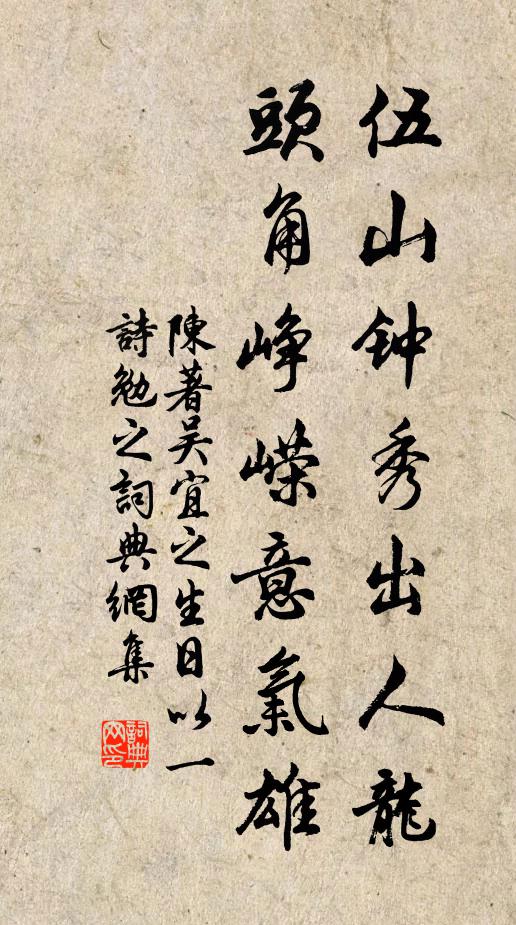 伍山钟秀出人龍
頭角峥嵘意氣雄
陳著吴宜之生日以一
詩勉之詞典網集
詞典网印